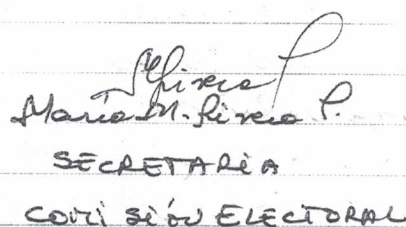 María M. Rivera P.
SECRETARIA
COMISIÓN ELECTORAL